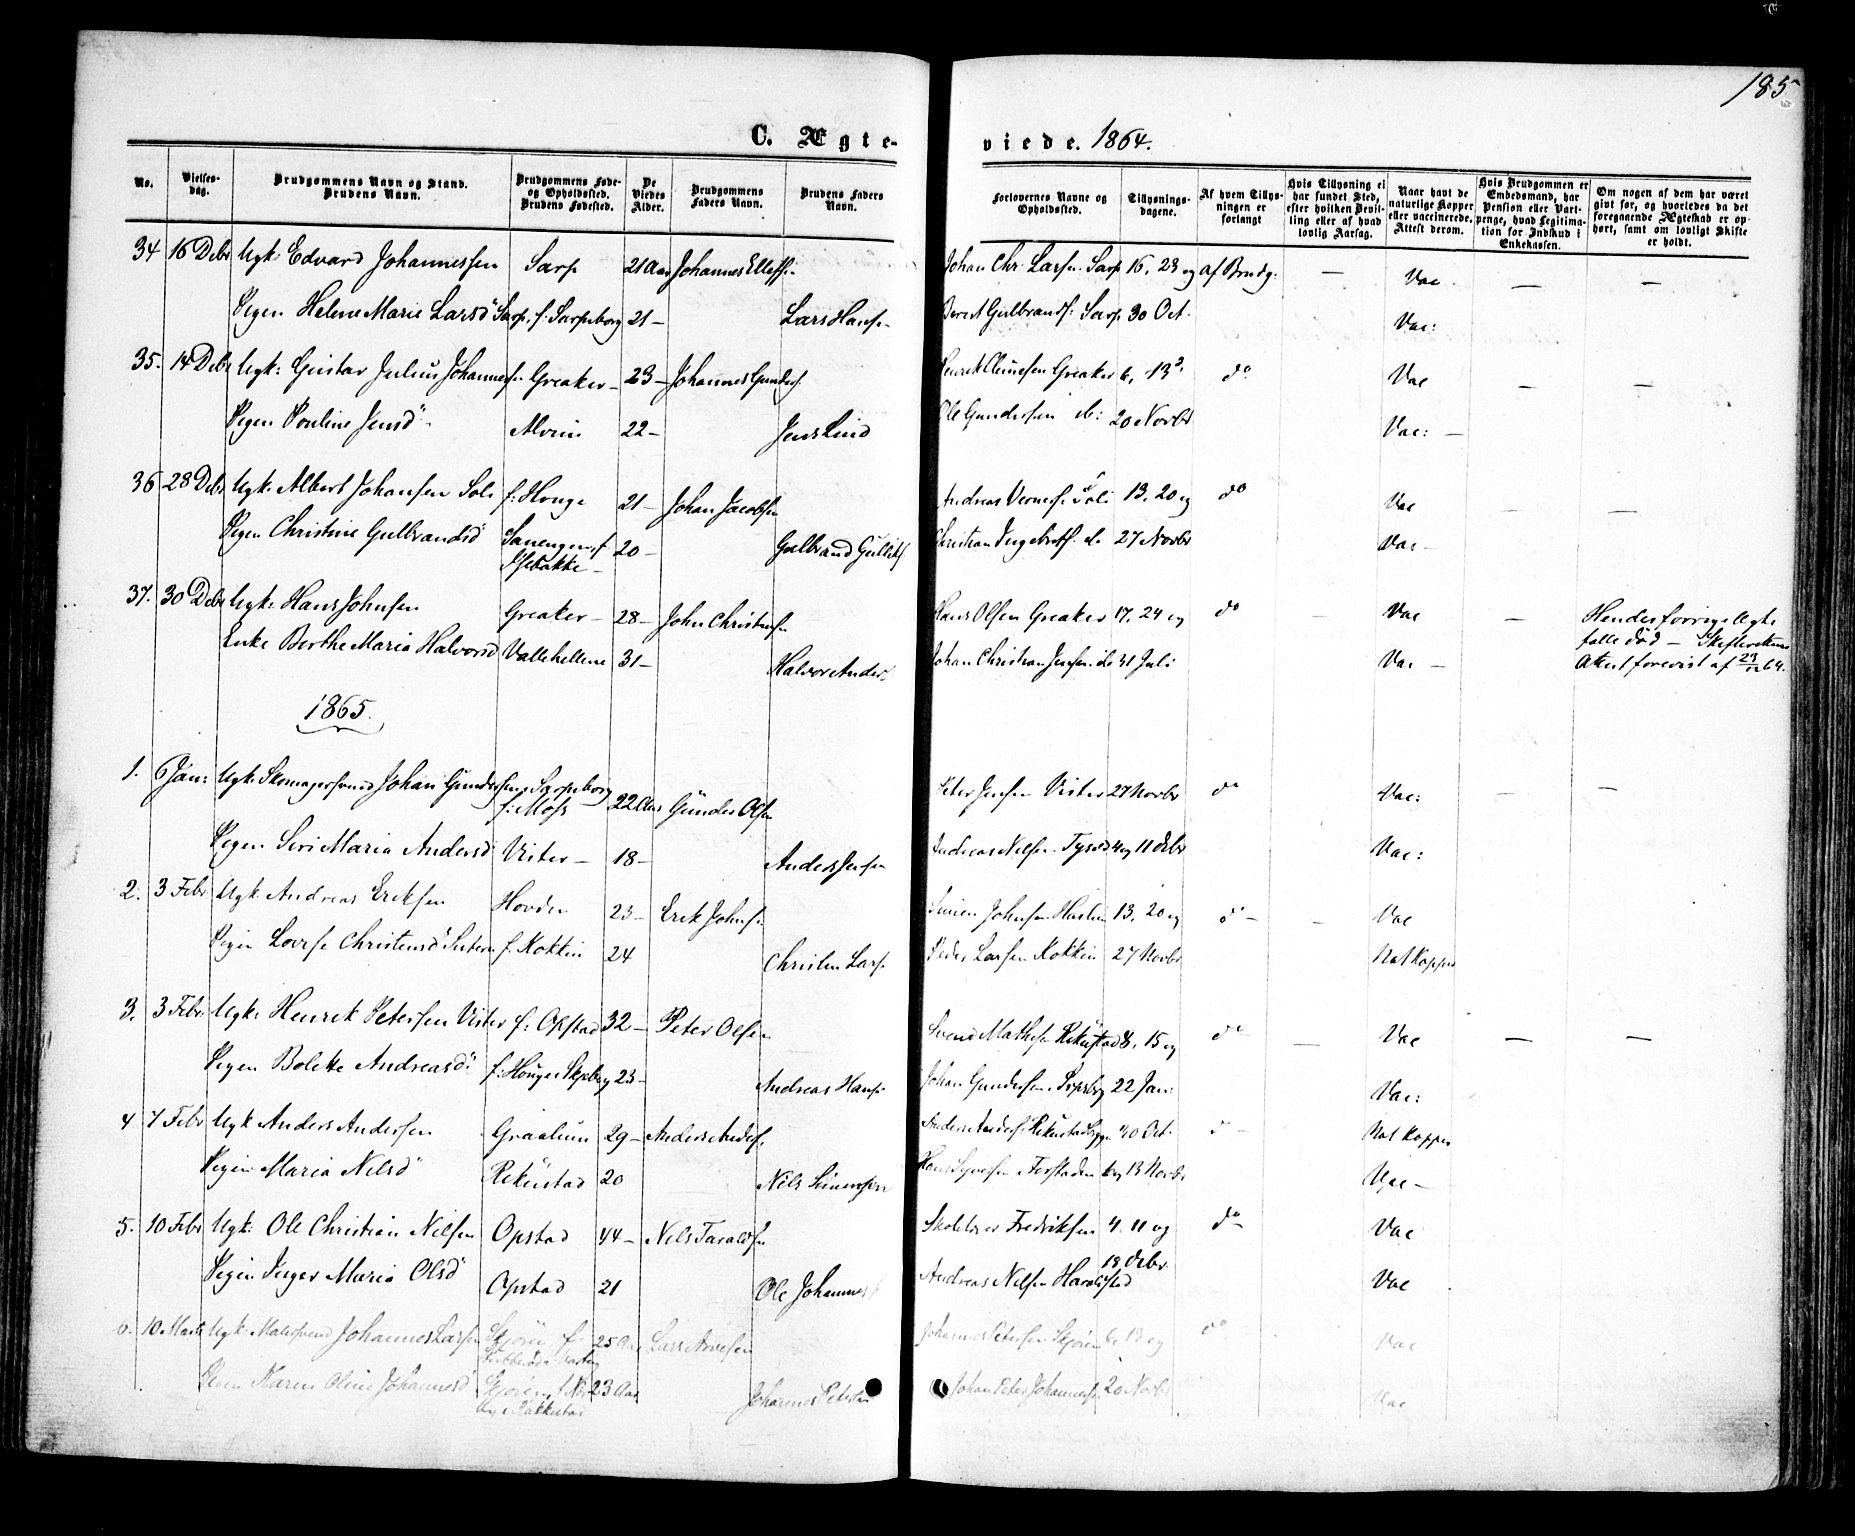 185
C. Ægte-
viede. 1864.
No.
Vielses-dag.
Brudgommens Navn og Stand.
Brudens Navn.
Brudgommens Føde-
og Opholdssted.
Brudens Fødested.
De
Viedes
Alder.
Brudgommens
Faders Navn.
Brudens Faders
Navn.
Forlovernes Navne og
Opholdssted.
Tillysnings-
dagene.
Af hvem Tillys-
ningen er
forlangt
Hvis Tillysning ei
har fundet Sted,
efter hvilken Bevil-
ling eller af hvad
lovlig Aarsag.
Naar havt de
naturlige Kopper
eller vaccinerede.
Attest derom.
Hvis Brudgommen er
Embedsmand, har
Pension eller Vart-
penge, hvad Legitima-
tion for Indskud i
Enkekassen.
Om nogen af dem har været
givt før, og hvorledes da det
foregaaende Ægteskab er op-
hørt, samt om lovligt Skifte
er holdt.
34 16 Debr Ugk: Edvard Johannessen Sarp 21 Aar Johannes Ellefs. Johan Chr: Larsen Sarp 16, 23 og af Brudg: — Vac — —
Pigen Helene Marie Larsd" Sarp, f. Sarpsborg 21 — Lars Hans. Gulbrands: Sarp 30 Oct. Vac:
35. 14 Debr Ugk: Gustav Julius Johannesen Greaker — 23 — Johannes Gunders. Henrik Clemesen Greaker 6, 13 do Vac — —
Pigen Pouline Jensd" Alvim 22 — Jens Lind Ole Gundersen do: 20 Novbr Vac: —
36 28 Debr Ugk: Albert Johansen Soli f: Houge 21 — Johan Jacobsen Andreas Vernes. Soli 13, 20 og do Vac — —
Pigen Christine Gulbrandsd" f. 20 — Gulbrand Christian do 27 Novbr Vac —
Isebakke —
37. 30 Debr Ugk: Hans Johnsen Greaker — 28 — John Christensen Hans Olsen Greaker 17, 24 og do — Vac — Hendes forrige Ægte
Enke Berthe Maria Halvorsd Vallehellene 31 — Halvor Anders: Johan Christian Jensen do 31 Juli Vac — fælle død — Skifterettens
Attest forevist af 23/12 64.
1865.
1. 6 Jan: Ugk: Skomagersvend Johan Gundersen, Sarpsborg
f: Moss 22 Aar Gunder Olsen Peter Jensen Vister 27 Novbr do Vac: — —
Pigen Siri Maria Andersd Vister — 18 — Anders Jensen Andreas Nilsen 4 og 11 Debr Vac:
2. 3 Febr Ugk Andreas Eriksen Hovde 23 — Erik Johnsen Simen Johnsen Haslem 13, 20 og do — — Vac
Pigen Lovise Christensd" f. Kokkim 24 Christen Lars. Peder Larsen Kokkim 27 Novbr Nat Kopper
3. 3 Febr: Ugk: Henrik Petersen Vister f: Opstad 32 — Peter Olsen Svend Mathisen Rekustad 8, 15 og do — Vac — —
Pigen Bolette Andreasd: f: Houge Skjeberg 23 — Andreas Hans. Johan Gundersen Srpsbg 22 Jan: Vac:
4 7 Febr Ugk Anders Andersen Graalum 29 — Anders Anders. Anders Anders. 30 Oct. do — Nat Kopper
Pigen Maria Nilsd" Rekustad 20 Nils Simensen Hans Syversen 6 og 13 Novbr Vac —
5. 10 Febr Ugk: Ole Christian Nilsen Opstad 44 — Nils Taraldsen Fredriksen 4, 11 og do Vac
18 Debr
Pigen Inger Maria Olsd" Opstad 21 Ole Johannes. Andreas Nilsen Haraldstad Vac
6. 10 Marts Ugk: Malersvend Johannes Larsen Skjøren f. 25 Aar Lars Arvesen Johannes Petersen Skjøren 6, 13 og do Vac
Pigen Karen Oline Johannesd Skjøren 23 Aar Johannes Petersen Johan Peter Johannesen 20 Novbr Vac
Rakkestad